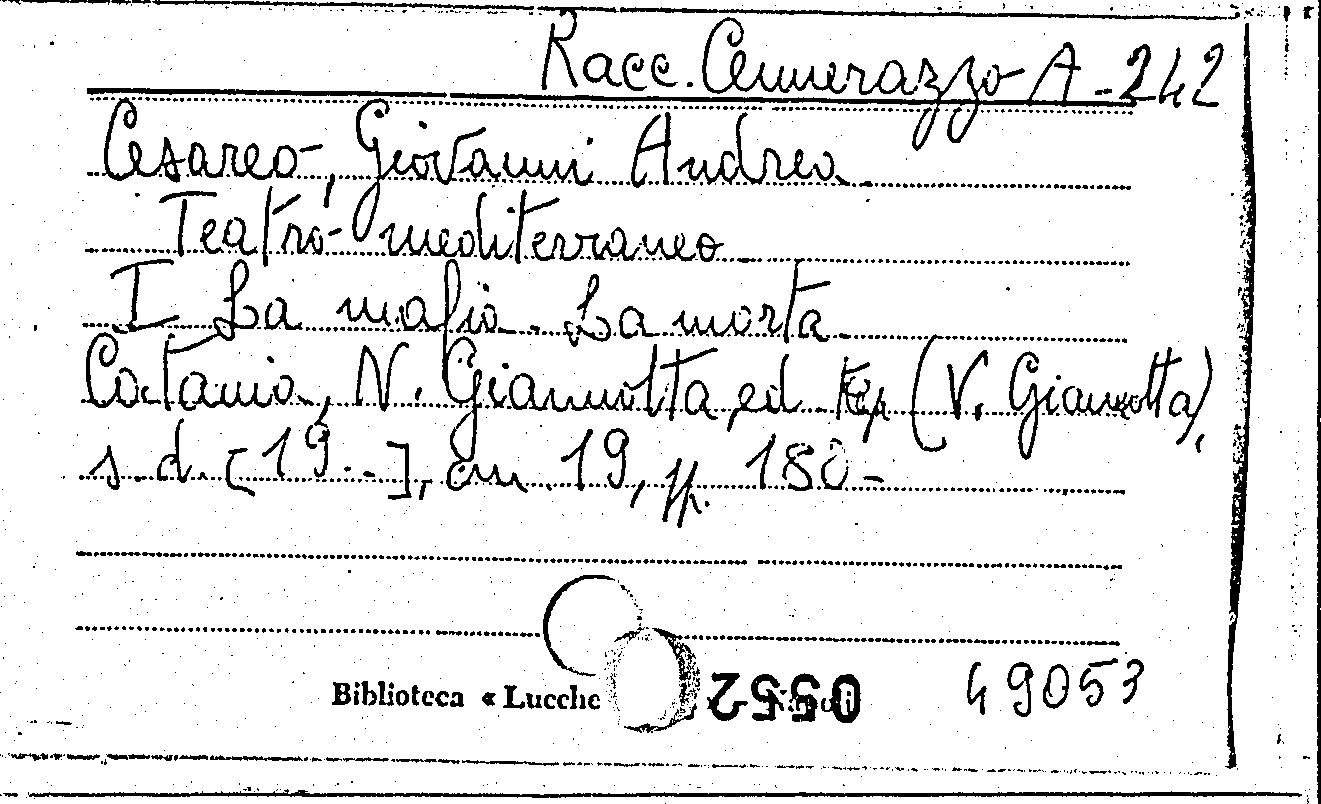 Racc. Cennerazzo A-242
Cesareo, Giovanni Andrea
Teatro mediterraneo
I La mafia. La morta
Catania, N. Giannotta, ed tip (V. Giannotta),
s.d. [19..], cm. 19, pp. 180-
Biblioteca « Lucche
0552
49053